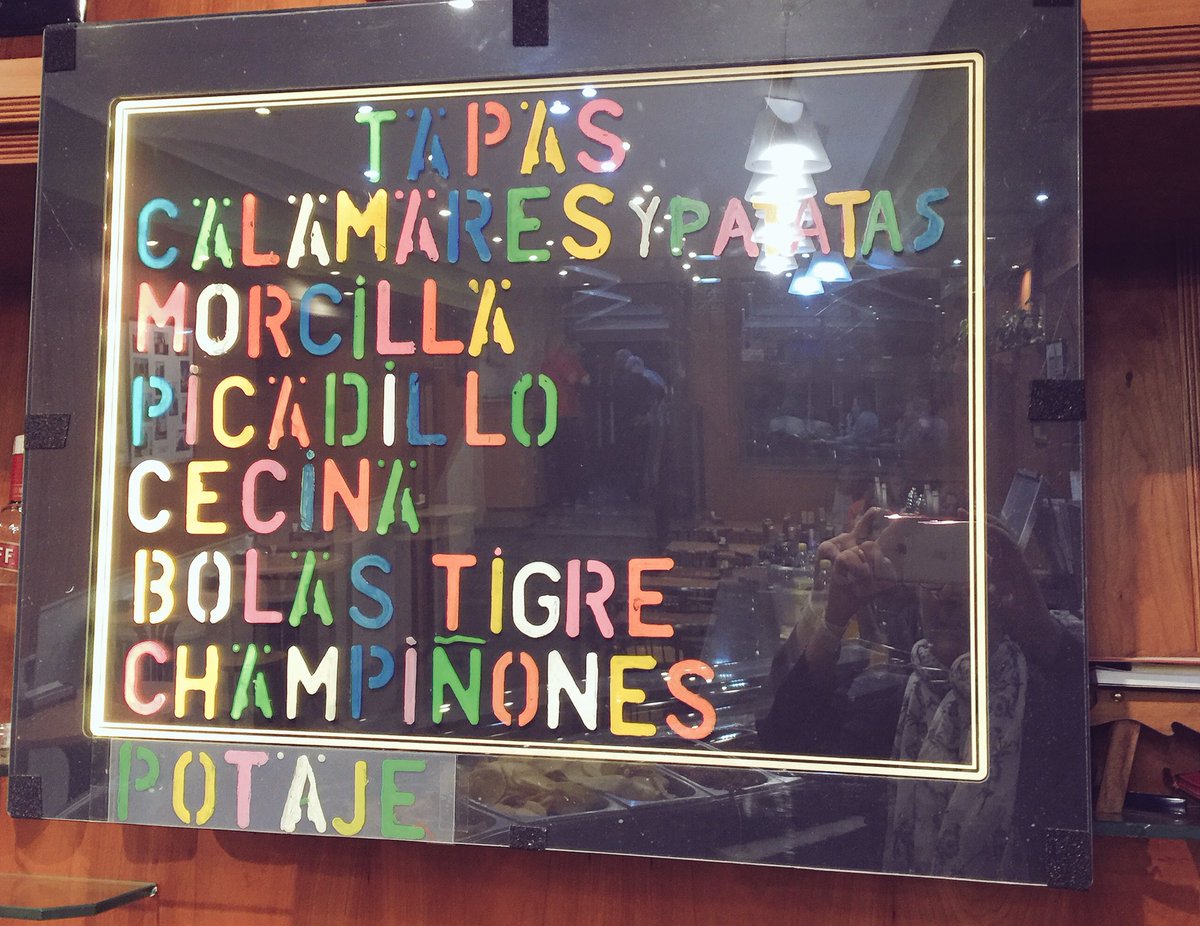 TAPAS
CALAMARES Y PATATAS
MORCILLA
PICADILLO
CECINA
BOLAS TIGRE
CHAMPIÑONES
POTAJE
FF